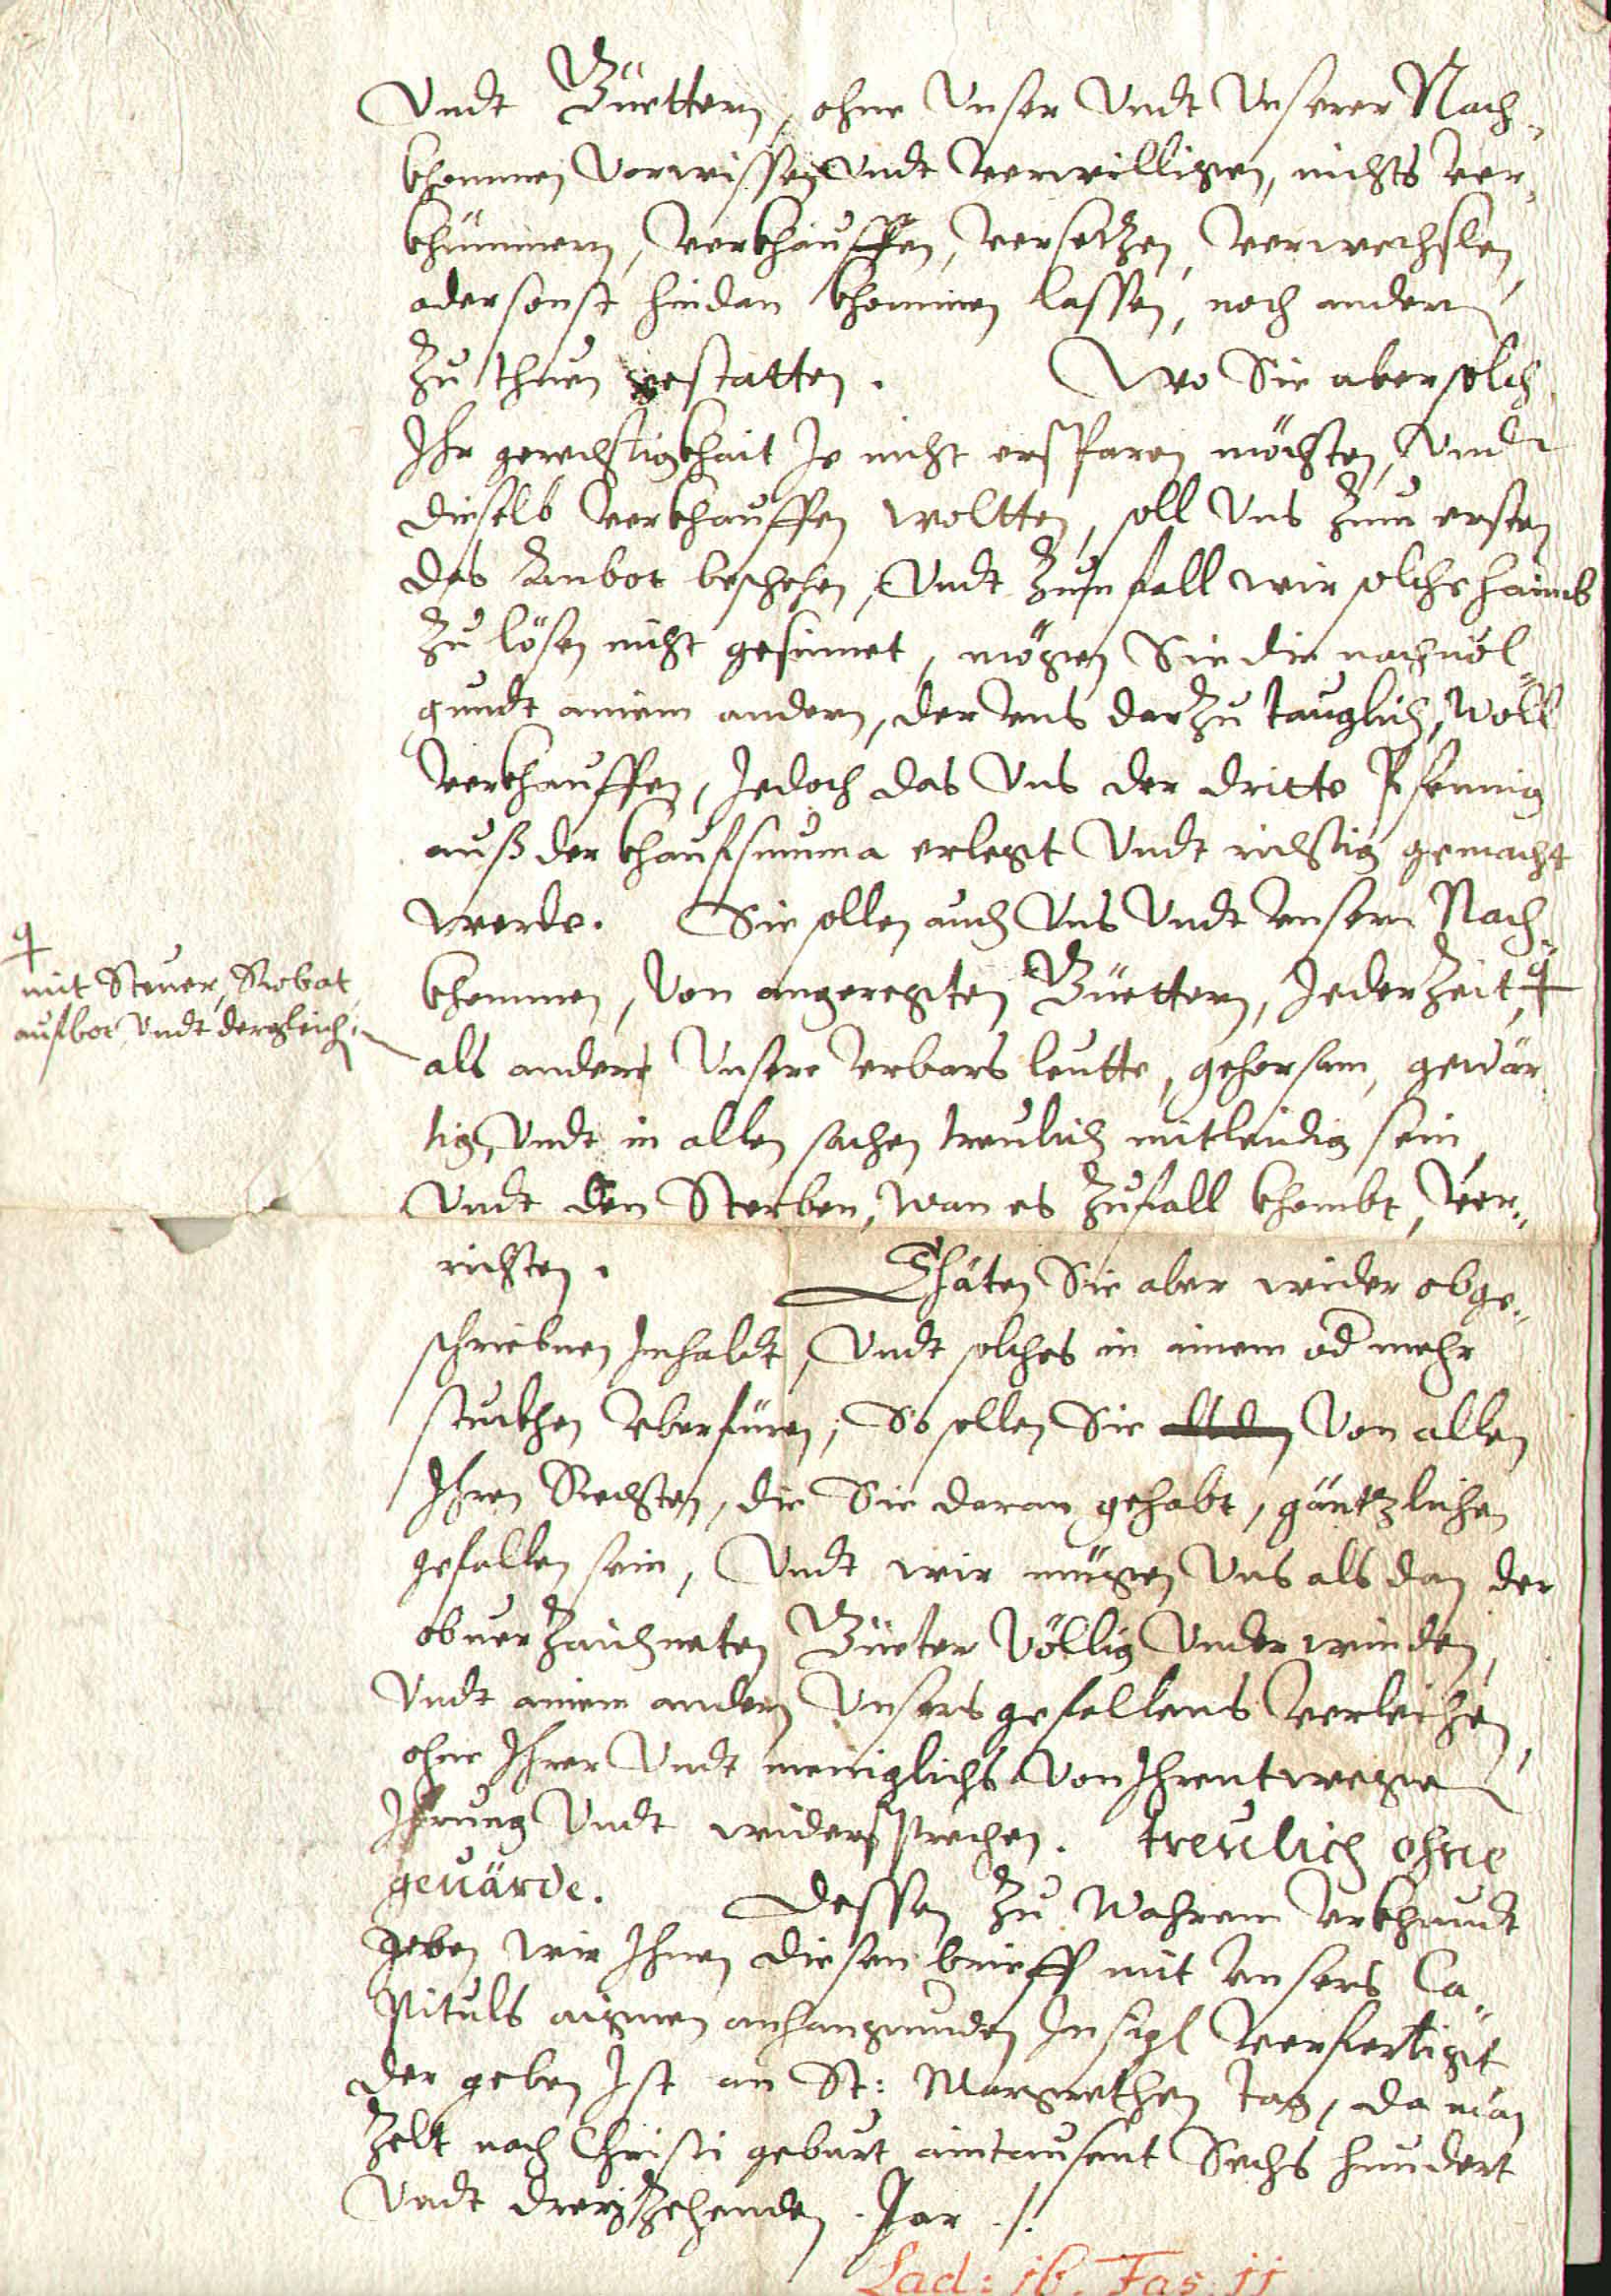 Undt Güettern, ohne Unser Undt Unserer Nach¬
khommen Vorwissen Undt verwilligen, nichts ver¬
khümmern, verkhauffen, versetzen, verwechslen,
oder sonst hindan khommen lassen, noch andern
zu thuen gestatten. Wo Sie aber solch
Ihr gerechtigkhait Je nicht ersparen möchten, Undt
dieselb verkhauffen woltten, soll Uns zum ersten
das Anbot beschehen, Undt zum fall wir solche haimb
zu lösen nicht gesinnet, mögen Sie die nachuol¬
gundt ainem andern, der Uns darzu tauglich, woll
verkhauffen, Jedoch das Uns der dritte Pfennig
auß der khaufsumma erlegt Undt richtig gemacht
werde. Sie sollen auch Uns Undt Unsern Nach¬
khommen, Von angeregten Güettern, Jederzeit,
mit Steuer, Robat,
aufbot Undt dergleich.
als andere Unsere Urbars leutte, gehorsam, gewär
tig, Undt in allen sachen treulich mitleidig sein,
Undt den Sterben, wan es zufall khombt, ver¬
richten. Thäten Sie aber wider obge¬
schriebnen Inhaldt, Undt solches in ainem od mehr
stuckhen Uberfüren, So sollen Sie Von allen
Ihren Rechten, die Sie daran gehabt, gäntzlichen
gefallen sein, Undt wir mügen Uns als dan der
obuerzaichneten Güeter Völlig Underwinden,
Undt ainem andern Unsers gefallens verleichen,
ohne Ihrer Undt meniglichs Von Ihrentwegen
Irrung Undt widersprechen. treulich ohne
geuärde. Dessen zu Wahrem Urkhundt
geben wir Ihnen diesen brieff mit Unsers Ca¬
pituls aignen anhangunden Insigl verfertigt
der geben Ist an St: Margrethen Tag, da man
zelt nach Christi geburt aintausent Sechs hundert
Undt dreyzehenden Jar ./.
Lad: 16. Fas. 11